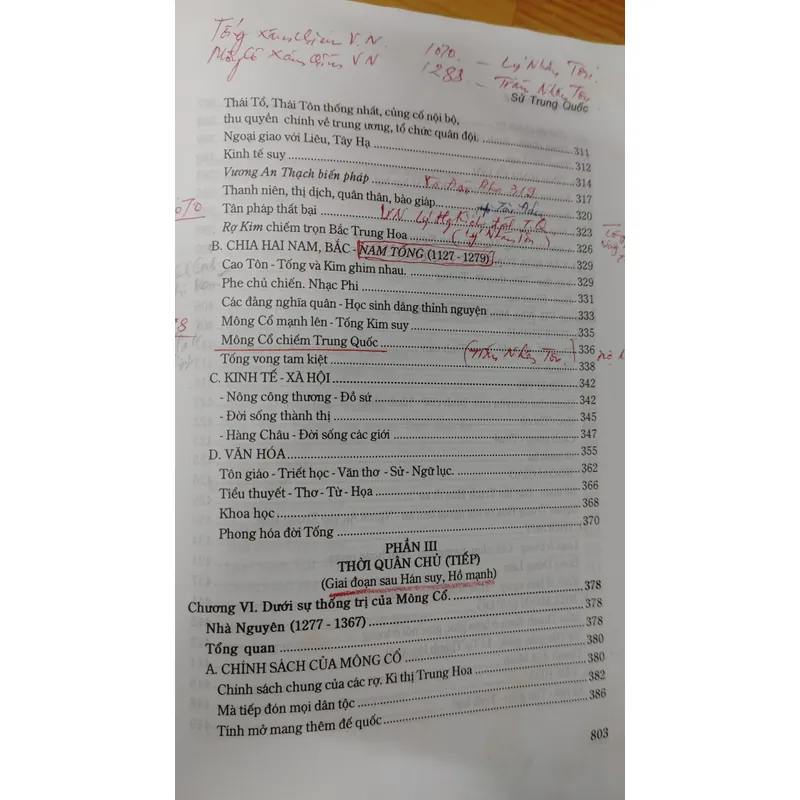 Tống xâm chiếm V.N. 1070. - Lý Nhân Tôn.
Mông Cổ xâm chiếm VN 1288 - Trần Nhân Tôn
Sử Trung Quốc
Thái Tổ, Thái Tôn thống nhất, củng cố nội bộ,
thu quyền chính về trung ương, tổ chức quân đội. 311
Ngoại giao với Liêu, Tây Hạ 312
Kinh tế suy 314
Vương An Thạch biến pháp 317
Thanh niên, thị dịch, quân thân, bảo giáp 320
1070
Tân pháp thất bại 323
Rợ Kim chiếm trọn Bắc Trung Hoa 326
(Lý Nhân Tôn)
B. CHIA HAI NAM, BẮC - NAM TỐNG (1127 - 1279) 329
Cao Tôn - Tống và Kim ghìm nhau. 329
Phe chủ chiến. Nhạc Phi 331
Các đảng nghĩa quân - Học sinh dâng thỉnh nguyện 333
Mông Cổ mạnh lên - Tống Kim suy 335
Mông Cổ chiếm Trung Quốc 336
(Trần Nhân Tôn)
Tống vong tam kiệt 338
C. KINH TẾ - XÃ HỘI 342
- Nông công thương - Đồ sứ 342
- Đời sống thành thị 345
- Hàng Châu - Đời sống các giới 347
D. VĂN HÓA 355
Tôn giáo - Triết học - Văn thơ - Sử - Ngữ lục. 362
Tiểu thuyết - Thơ - Từ - Họa 366
Khoa học 368
Phong hóa đời Tống 370
PHẦN III
THỜI QUÂN CHỦ (TIẾP)
(Giai đoạn sau Hán suy, Hồ mạnh)
Chương VI. Dưới sự thống trị của Mông Cổ. 378
Nhà Nguyên (1277 - 1367) 378
Tổng quan 378
A. CHÍNH SÁCH CỦA MÔNG CỔ 380
Chính sách chung của các rợ. Kì thị Trung Hoa 380
Mà tiếp đón mọi dân tộc 382
Tính mở mang thêm đế quốc 386
803